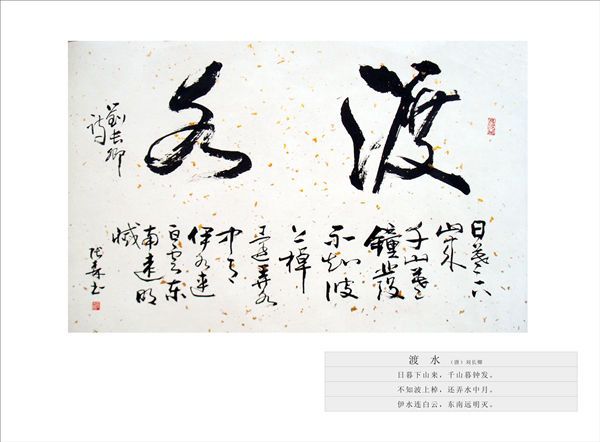 渡水
劉長卿
詩
日暮下
山来
千山暮
鐘發
不知波
上棹
還弄水
中月
伊水連
白雲東
南遠明
滅
渡 水 （唐）刘长卿
日暮下山来，千山暮钟发。
不知波上棹，还弄水中月。
伊水连白云，东南远明灭。